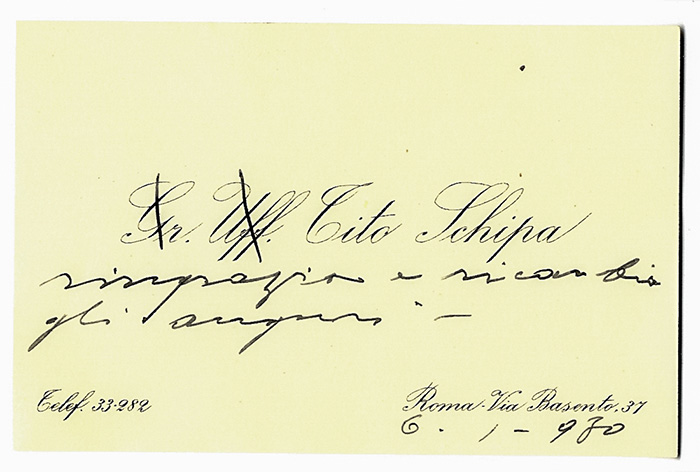 Gr. Uff. Tito Schipa
ringrazia e ricambia
gli auguri –
Telef. 33-282
Roma-Via Basento, 37
6 - 1 - 930